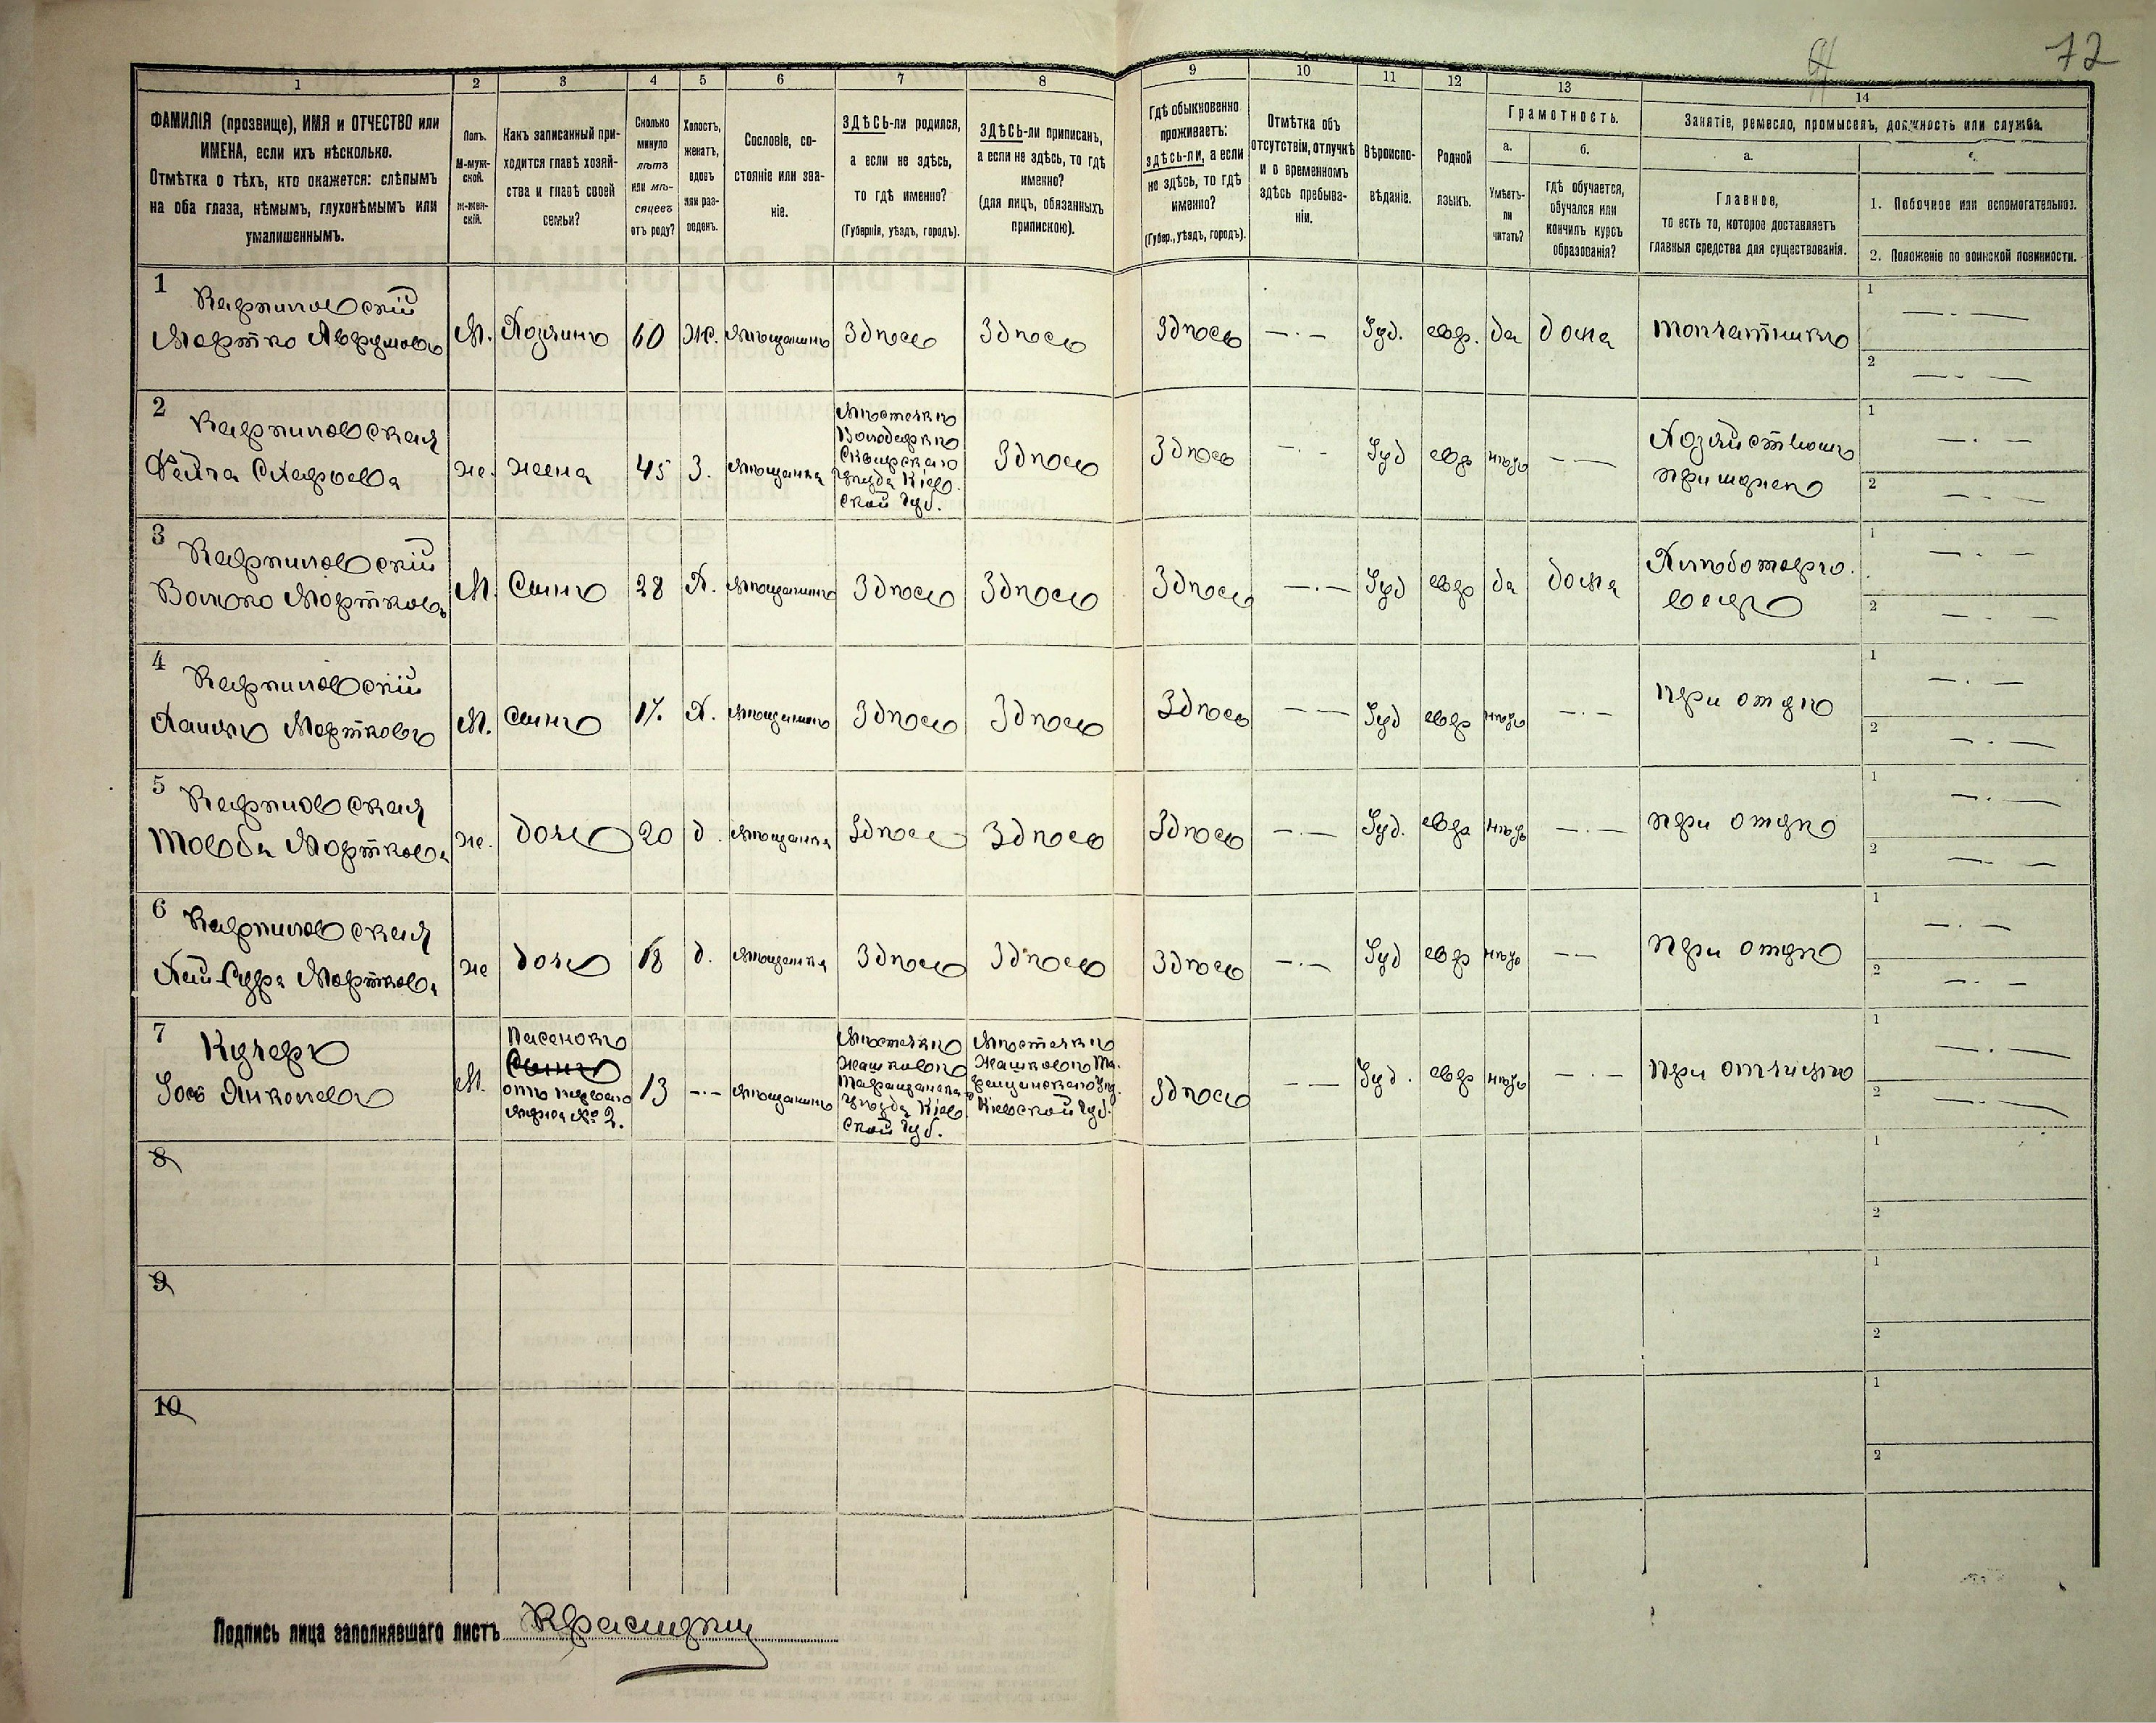 72
1 2 3 4 5 6 7 8 9 10 11 12 13 14
ФАМИЛІЯ (прозвище), ИМЯ и ОТЧЕСТВО или
ИМЕНА, если ихъ нѣсколько.
Отмѣтка о тѣхъ, кто окажется: слѣпымъ
на оба глаза, нѣмымъ, глухонѣмымъ или
умалишеннымъ.
Полъ.
М-муж-
ской.
ж-жен-
скій.
Какъ записанный при-
ходится главѣ хозяй-
ства и главѣ своей
семьи?
Сколько
минуло
лѣтъ
или мѣ-
сяцевъ
отъ роду?
Холостъ,
женатъ,
вдовъ
или раз-
веденъ.
Сословіе, со-
стояніе или зва-
ніе.
ЗДѢСЬ-ли родился,
а если не здѣсь,
то гдѣ именно?
(Губернія, уѣздъ, городъ).
ЗДѢСЬ-ли приписанъ,
а если не здѣсь, то гдѣ
именно?
(для лицъ, обязанныхъ
припискою).
Гдѣ обыкновенно
проживаетъ:
здѣсь-ли, а если
не здѣсь, то гдѣ
именно?
(Губер., уѣздъ, городъ).
Отмѣтка объ
отсутствіи, отлучкѣ
и о временномъ
здѣсь пребыва-
ніи.
Вѣроиспо-
вѣданіе.
Родной
языкъ.
Грамотность.
а.
Умѣетъ-
ли
читать?
б.
гдѣ обучается,
обучался или
кончилъ курсъ
образованія?
Занятіе, ремесло, промыселъ, должность или служба.
а.
Главное,
то есть то, которое доставляетъ
главныя средства для существованія.
1. Побочное или вспомогательное.
2. Положеніе по воинской повинности.
1
Карпиловскій
Мортко Аврумовъ
М. Хозяинъ 60 Ж. мѣщанинъ Здѣсь Здѣсь Здѣсь —·— Іуд. евр. да дома
1 —·—
2 —·—
2
Карпиловская
Фейга
же. жена 45 З. мѣщанка
Мѣстечкѣ
Володаркѣ
Сквирскаго
уѣзда Кіев-
ской губ.
Здѣсь Здѣсь —·— Іуд евр нѣтъ ——
Хозяйствомъ
при мужѣ
1 —·—
2 —·—
3
Карпиловскій
Волько Мортковъ
М. Сынъ 28 Х. мѣщанинъ Здѣсь Здѣсь Здѣсь —·— Іуд евр да дома
Хлѣботорго-
вецъ
1 —·—
2 —·—
4
Карпиловскій
Хаимъ Мортковъ
М. Сынъ 17. Х. мѣщанинъ Здѣсь Здѣсь Здѣсь —— Іуд евр нѣтъ —·— при отцѣ
1 —·—
2 —·—
5
Карпиловская
Товба Морткова
же. дочь 20 д. мѣщанка Здѣсь Здѣсь Здѣсь —·— Іуд. евр нѣтъ —·— при отцѣ
1 —·—
2 —·—
6
Карпиловская
Хай-Сура Морткова
же дочь 18 д. мѣщанка Здѣсь Здѣсь Здѣсь —·— Іуд евр нѣтъ —— при отцѣ
1 —·—
2 —·—
7
Кучеръ
Іось Янкелевъ
М.
Пасенокъ
Сынъ
отъ перваго
мужа № 2.
13 —·— мѣщанинъ
Мѣстечкѣ
Жашковѣ
Таращанска
уѣзда Кіев-
ской губ.
Мѣстечкѣ
Жашковѣ Та-
ращанскаго уѣз.
Кіевской губ.
Здѣсь —— Іуд. евр нѣтъ —·— при отчимѣ
1 —·—
2 —·—
8
1
2
9
1
2
10
1
2
Подпись лица заполнявшаго листъ